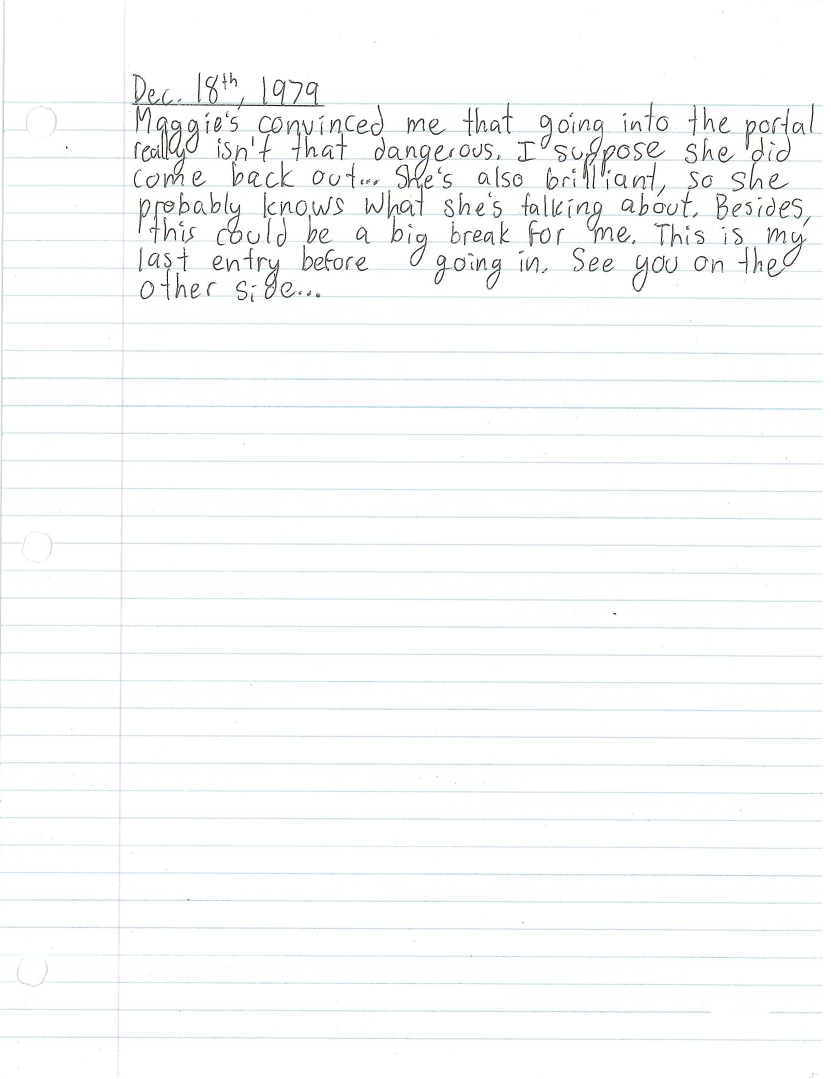 Dec. 18th, 1979
Maggie's convinced me that going into the portal
really isn't that dangerous. I suppose she did
come back out... She's also brilliant, so she
probably knows what she's talking about. Besides,
this could be a big break for me. This is my
last entry before going in. See you on the
other side...